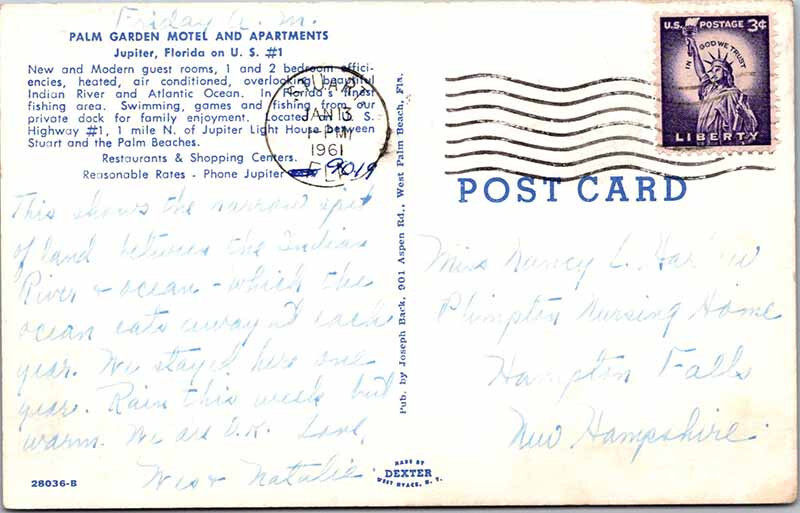 Friday A. M.
PALM GARDEN MOTEL AND APARTMENTS
Jupiter, Florida on U. S. #1
New and Modern guest rooms, 1 and 2 bedroom effici-
encies, heated, air conditioned, overlooking beautiful
Indian River and Atlantic Ocean. In Florida's finest
fishing area. Swimming, games and fishing from our
private dock for family enjoyment. Located on U. S.
Highway #1, 1 mile N. of Jupiter Light House between
Stuart and the Palm Beaches.
Restaurants & Shopping Centers.
Reasonable Rates - Phone Jupiter 9019
This shows the narrow spit
of land between the Indian
River & ocean - which the
ocean eats away at each
year. We stayed here one
year. Rain this week but
warm. We are O.K. Love,
Wes & Natalie
28036-B
Pub. by Joseph Back, 901 Aspen Rd., West Palm Beach, Fla.
MADE BY
DEXTER
WEST NYACK, N. Y.
JAN 13
1 - PM
1961
FLA
U.S. POSTAGE 3¢
IN GOD WE TRUST
LIBERTY
POST CARD
Miss Nancy L.
Plimpton Nursing Home
Hampton Falls
New Hampshire